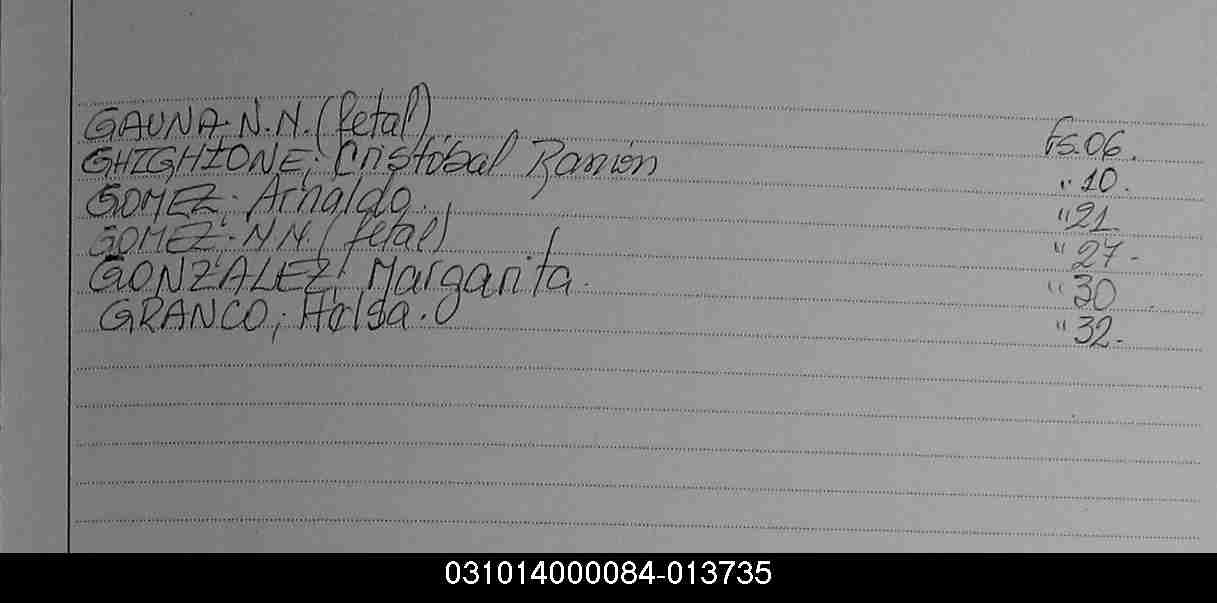 GAUNA N.N. (fetal) Fs. 06.
GHIGHIONE; Cristóbal Ramón " 10.
GOMEZ. Arnaldo. " 21
GOMEZ. N N. (fetal) " 27-
GONZALEZ, Margarita. " 30
GRANCO; " 32-
031014000084-013735